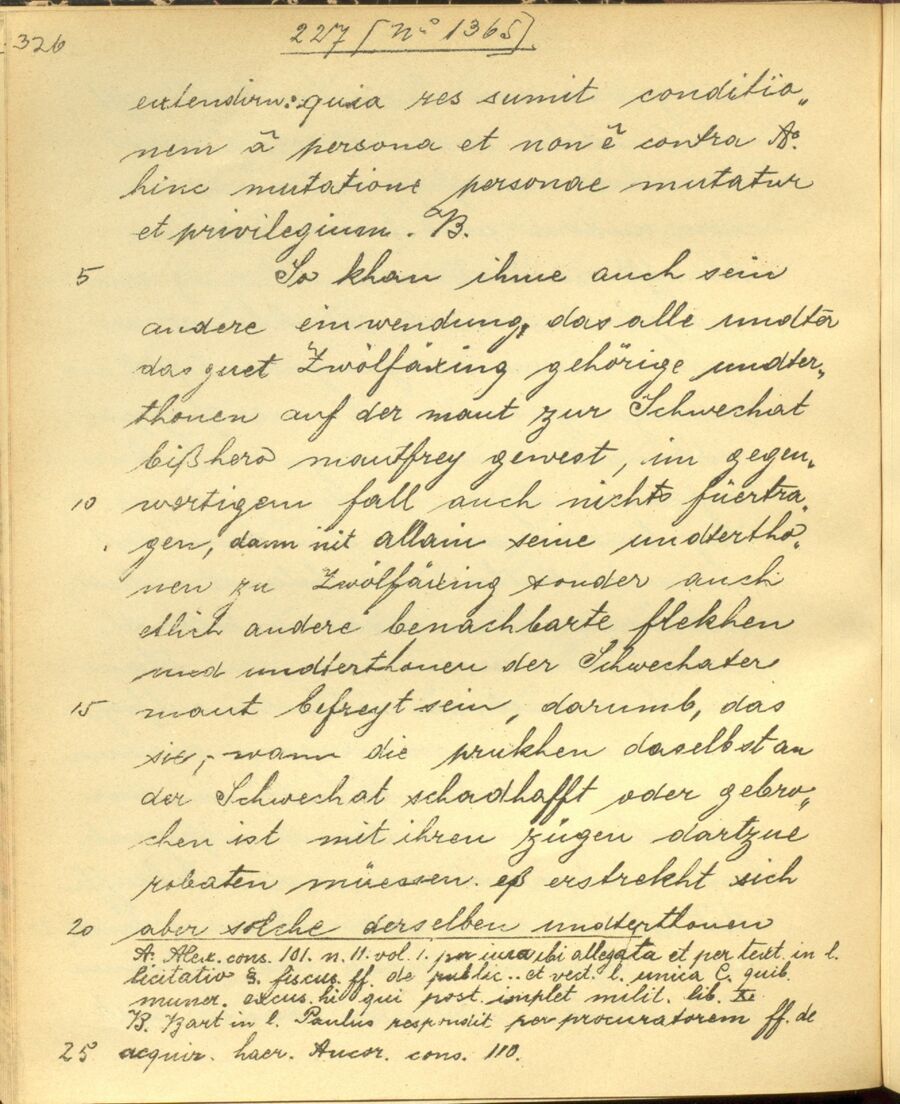 326
227 [Nº 1365]
extendirn: quia res sumit conditio„
nem â persona et non ê contra Aº.
hinc mutatione personae mutatur
et privilegium. B.
5 So khan ihme auch sein
andere einwendung, das alle undter
das guet Zwölfäxing gehörige undter„
thonen auf der maut zur Schwechat
bißhero mautfrey gewest, im gegen„
10 wertigem fall auch nichts füertra„
gen, dann nit allain seine undertho„
nen zu Zwölfäxing sonder auch
etlich andere benachbarte flekhen
und undterthonen der Schwechater
15 maut befreyt sein, darumb, das
sie, wann die prukhen daselbst an
der Schwechat schadhafft oder gebro„
chen ist mit ihren zügen dartzue
robaten müessen. eß erstrekht sich
20 aber solche derselben undterthonen
A. Alex. cons. 101. n. 11. vol. 1. per iura ibi allegata et per text. in l.
licitatio §. fiscus ff. de public.. et vect. l. unica C. quib.
muner. excus. hi qui post. implet milit. lib. X.
B. Bart in l. Paulus respondit per procuratorem ff. de
25 acquir. haer. Ancor. cons. 110.